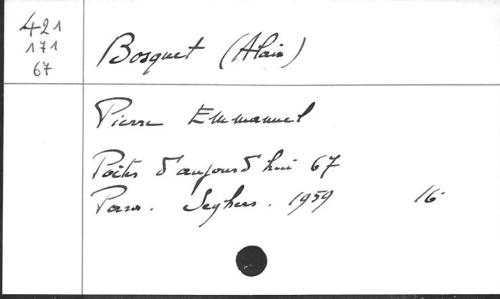 421
171
67
Bosquet (Alain)
Pierre Emmanuel
Poètes d'aujourd'hui 67
Paris. Seghers. 1959 16